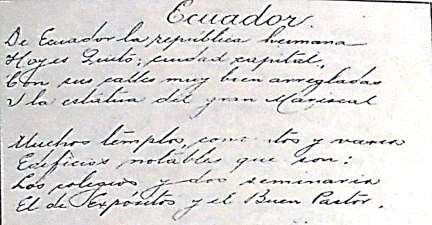 Ecuador.
De Ecuador la república hermana
Hoy es Quito, ciudad capital,
Con sus calles muy bien arregladas
I la estatua del gran Mariscal
Muchos templos, y varios
Edificios notables que son:
Los colegios y dos seminarios
El de Expósitos y el Buen Pastor.